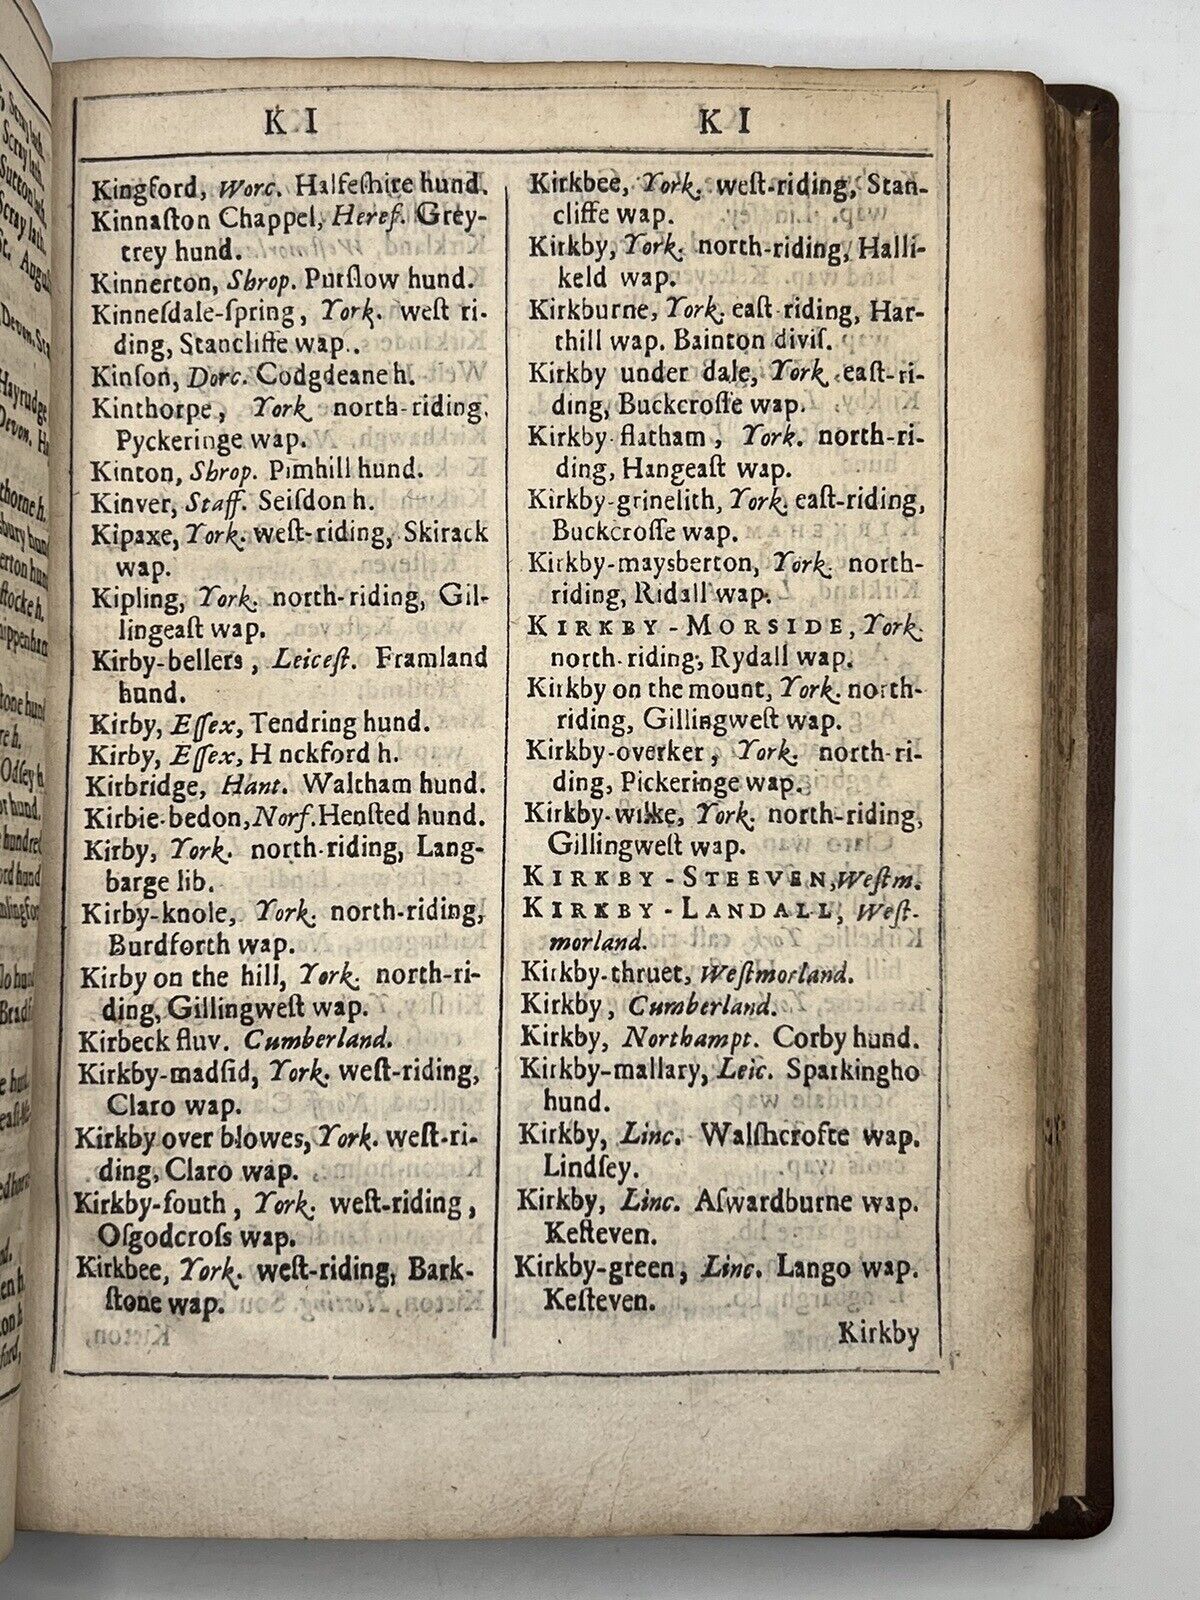 K I
Kingford, Worc. Halfeſhire hund.
Kinnaſton Chappel, Heref. Grey-
trey hund.
Kinnerton, Shrop. Purſlow hund.
Kinneſdale-ſpring, York. weſt ri-
ding, Stancliffe wap.
Kinſon, Dorc. Codgdeane h.
Kinthorpe, York north-riding,
Pyckeringe wap.
Kinton, Shrop. Pimhill hund.
Kinver, Staff. Seiſdon h.
Kipaxe, York. weſt-riding, Skirack
wap.
Kipling, York. north-riding, Gil-
lingeaſt wap.
Kirby-bellers, Leiceſt. Framland
hund.
Kirby, Eſſex, Tendring hund.
Kirby, Eſſex, H nckford h.
Kirbridge, Hant. Waltham hund.
Kirbie-bedon, Norf. Henſted hund.
Kirby, York. north-riding, Lang-
barge lib.
Kirby-knole, York. north-riding,
Burdforth wap.
Kirby on the hill, York. north-ri-
ding, Gillingweſt wap.
Kirbeck fluv. Cumberland.
Kirkby-madſid, York. weſt-riding,
Claro wap.
Kirkby over blowes, York. weſt-ri-
ding, Claro wap.
Kirkby-fouth, York. weſt-riding,
Oſgodcroſs wap.
Kirkbee, York. weſt-riding, Bark-
ſtone wap.
K I
Kirkbee, York. weſt-riding, Stan-
cliffe wap.
Kirkby, York. north-riding, Halli-
keld wap.
Kirkburne, York. eaſt-riding, Har-
thill wap. Bainton diviſ.
Kirkby under dale, York. eaſt-ri-
ding, Buckcroſſe wap.
Kirkby-flatham, York. north-ri-
ding, Hangeaſt wap.
Kirkby-grinelith, York. eaſt-riding,
Buckcroſſe wap.
Kirkby-maysberton, York. north-
riding, Ridall wap.
KIRKBY-MORSIDE, York.
north-riding, Rydall wap.
Kirkby on the mount, York. north-
riding, Gillingweſt wap.
Kirkby-overker, York. north-ri-
ding, Pickeringe wap.
Kirkby-wiske, York. north-riding,
Gillingweſt wap.
KIRKBY-STEEVEN, Weſtm.
KIRKBY-LANDALL, Weſt-
morland.
Kirkby-thruet, Weſtmorland.
Kirkby, Cumberland.
Kirkby, Northampt. Corby hund.
Kirkby-mallary, Leic. Sparkingho
hund.
Kirkby, Linc. Walſhcrofte wap.
Lindſey.
Kirkby, Linc. Aſwardburne wap.
Keſteven.
Kirkby-green, Linc. Lango wap.
Keſteven.
Kirkby